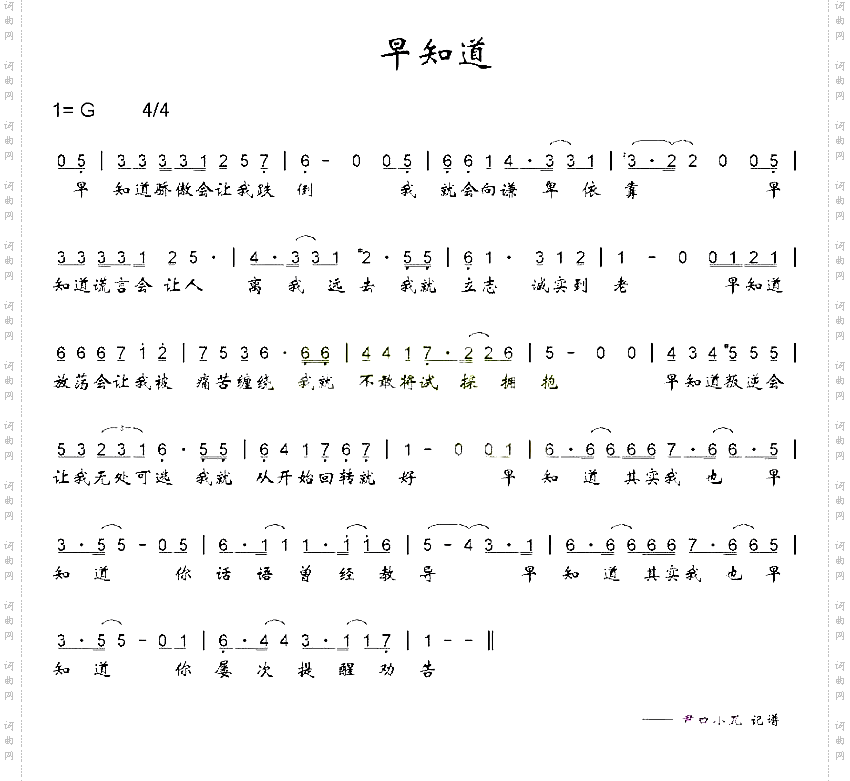 早知道
1= G 4/4
0 5 | 3 3 3 3 1 2 5 7 | 6 - 0 0 5 | 6 6 1 4 · 3 3 1 | 3 · 2 2 0 0 5 |
早 知道骄傲会让我跌 倒 我 就会向谦 卑 依 靠 早
3 3 3 3 1 2 5 · | 4 · 3 3 1 #2 · 5 5 | 6 1 · 3 1 2 | 1 - 0 0 1 2 1 |
知道谎言会 让人 离 我 远 去 我就 立志 诚实到 老 早知道
6 6 6 7 1 2 | 7 5 3 6 · 6 6 | 4 4 1 7 · 2 2 6 | 5 - 0 0 | 4 3 4 #5 5 5 |
放荡会让我被 痛苦缠绕 我就 不敢将试 探 拥 抱 早知道叛逆会
5 3 2 3 1 6 · 5 5 | 6 4 1 7 6 7 | 1 - 0 0 1 | 6 · 6 6 6 6 7 · 6 6 · 5 |
让我无处可逃 我就 从开始回转就 好 早 知 道 其实我 也 早
3 · 5 5 - 0 5 | 6 · 1 1 1 · 1 1 6 | 5 - 4 3 · 1 | 6 · 6 6 6 6 7 · 6 6 5 |
知 道 你 话 语 曾 经 教 导 早 知 道 其实我 也早
3 · 5 5 - 0 1 | 6 · 4 4 3 · 1 1 7 | 1 - - ‖
知 道 你 屡 次 提 醒 劝 告
—— 尹口小兀 记谱
词曲网